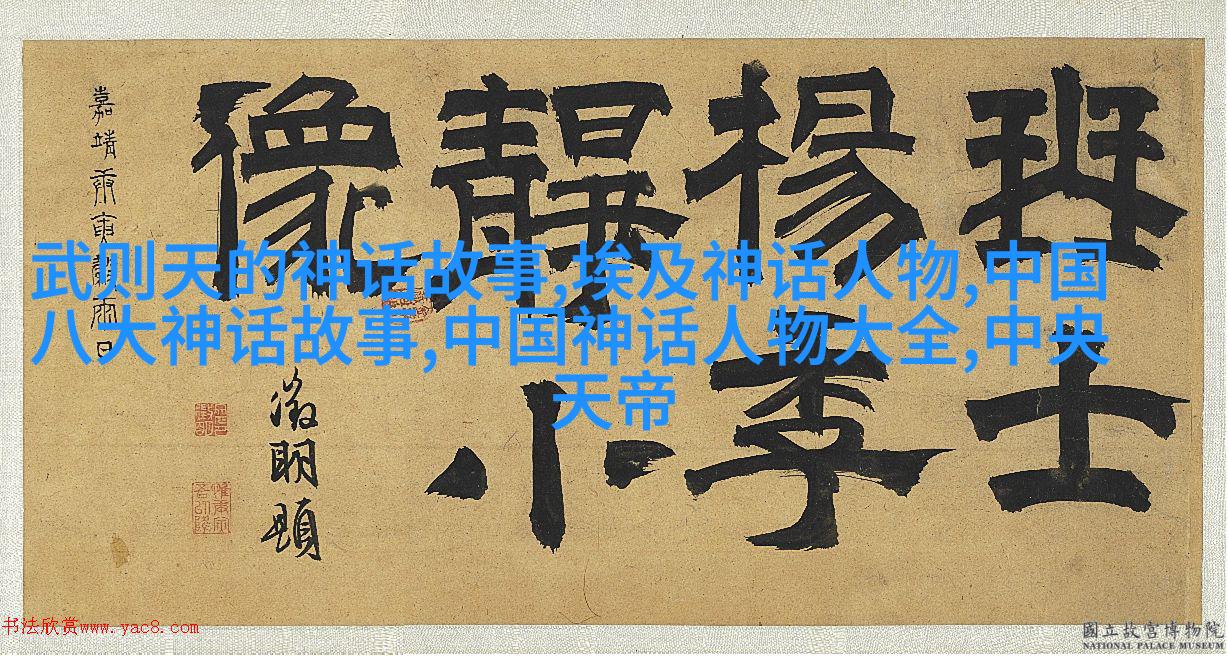 琴士
楊季
靜小
像
嘉靖庚寅
徵明題
武则天的神话故事,埃及神话人物,中国
八大神话故事,中国神话人物大全,中央
天帝
书法欣赏www.yac8.com
國立故宮博物院
NATIONAL PALACE MUSEUM